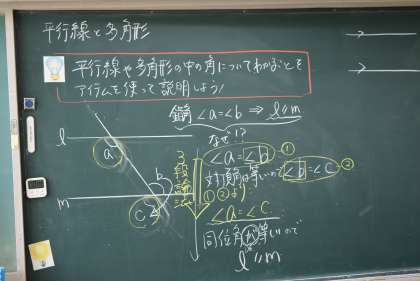 平行線と多角形
平行線や多角形の中の角についてわかることを
アイテムを使って説明しよう!
錯角 ∠a=∠b ⇒ l//m
なぜ!?
l
a
m
b
c
3段論法
∠a=∠b ①
対頂角は等しいので ∠b=∠c ②
①②より
∠a=∠c
同位角が等しいので
l//m